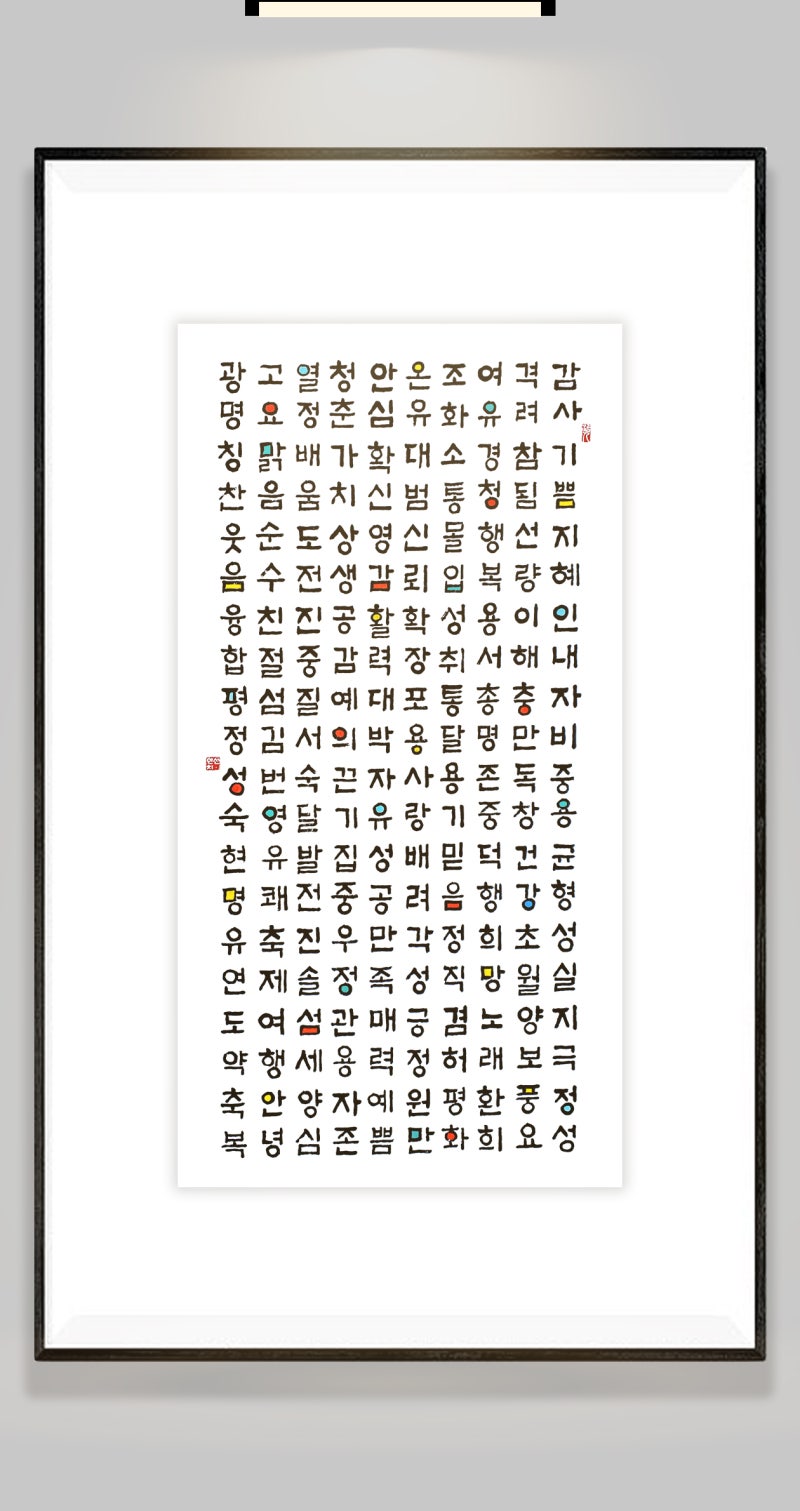 감사기쁨지혜인내자비중용균형성실지극정성
격려참됨선량이해충만독창건강초월양보풍요
여유경청행복용서총명존중덕행희망노래환희
조화소통몰입성취통달용기믿음정직겸허평화
온유대범신뢰확장포용사랑배려각성긍정원만
안심확신영감활력대박자유성공만족매력예쁨
청춘가치상생공감예의끈기집중우정관용자존
열정배움도전진중질서숙달발전진솔섬세양심
고요맑음순수친절섬김번영유쾌축제여행안녕
광명칭찬웃음융합평정성숙현명유연도약축복